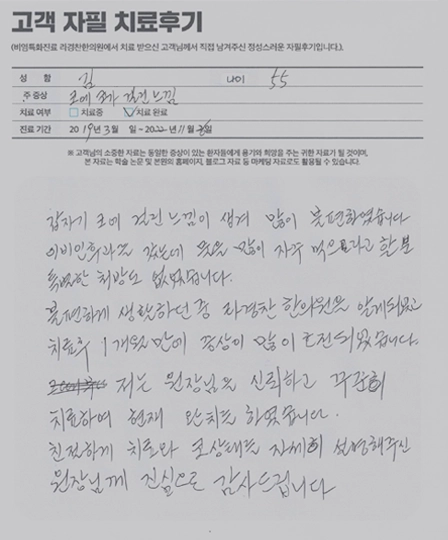 고객 자필 치료후기
(비염특화진료 라경찬한의원에서 치료 받으신 고객님께서 직접 남겨주신 정성스러운 자필후기입니다.)
성 함 김 나이 55
주 증상 코에 뭐가 걸린 느낌
치료 여부 치료중 치료 완료
진료 기간 2019년 3월 일 ~ 2022년 11월 일
※ 고객님의 소중한 자료는 동일한 증상이 있는 환자들에게 용기와 희망을 주는 귀한 자료가 될 것이며,
본 자료는 학술 논문 및 본원의 홈페이지, 블로그 자료 등 마케팅 자료로도 활용될 수 있습니다.
갑자기 코에 걸린 느낌이 생겨 많이 불편하였습니다
이비인후과로 갔는데 물을 많이 자주 먹으라고 할 뿐
특별한 처방도 없었습니다.
불편하게 생활하던 중 라경찬 한의원을 알게되었고
치료후 1개월만에 증상이 많이 호전되었습니다.
저는 원장님을 신뢰하고 꾸준히
치료하여 현재 완치를 하였습니다.
친절하게 치료와 코상태를 자세히 설명해주신
원장님께 진심으로 감사드립니다